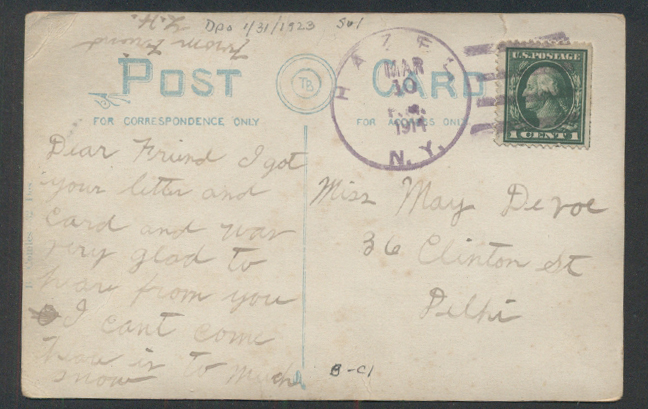 Dpo 1/31/1923 Sul
L. H.
from friend
POST CARD
TB
FOR CORRESPONDENCE ONLY
FOR ADDRESS ONLY
HAZEL
MAR
10
P.M.
1914
N.Y.
U.S. POSTAGE
1 CENT 1
Dear Friend I got
your letter and
card and was
very glad to
hear from you
I cant come
there is to much
snow
Miss May Devoe
36 Clinton St
Delhi
B-C1